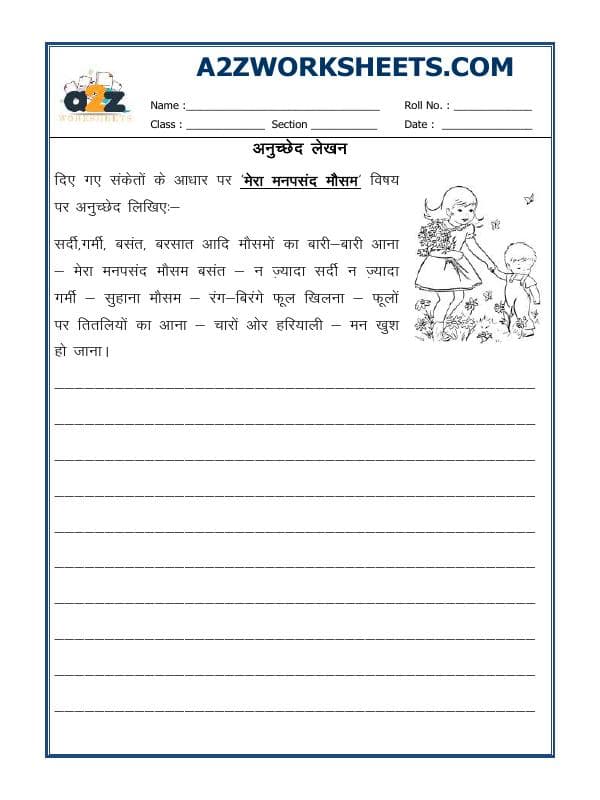 A2ZWORKSHEETS.COM
a2z
WORKSHEETS
Name :______________________________ Roll No. : ____________
Class : ____________ Section __________ Date : ______________
अनुच्छेद लेखन
दिए गए संकेतों के आधार पर ‘मेरा मनपसंद मौसम’ विषय
पर अनुच्छेद लिखिए:–
सर्दी,गर्मी, बसंत, बरसात आदि मौसमों का बारी–बारी आना
– मेरा मनपसंद मौसम बसंत – न ज़्यादा सर्दी न ज़्यादा
गर्मी – सुहाना मौसम – रंग–बिरंगे फूल खिलना – फूलों
पर तितलियों का आना – चारों ओर हरियाली – मन खुश
हो जाना।